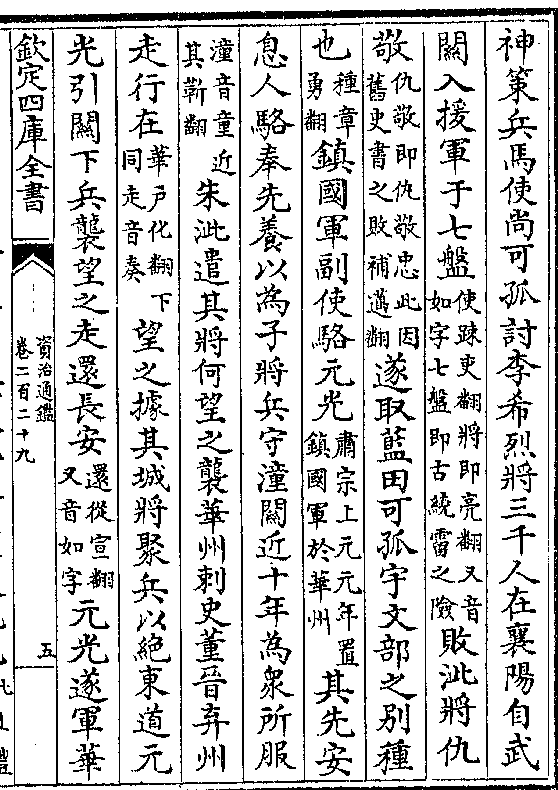 神策兵馬使尚可孤討李希烈將三千人在襄陽自武
關入援軍于七盤使踈吏翻將即亮翻又音如字七盤即古繞霤之險敗泚將仇
敬仇敬即仇敬忠此因舊史書之敗補邁翻遂取藍田可孤宇文部之別種
也種章勇翻鎮國軍副使駱元光肅宗上元元年置鎮國軍於華州其先安
息人駱奉先養以為子將兵守潼關近十年為衆所服
潼音童近其靳翻朱泚遣其將何望之襲華州刺史董晉弃州
走行在華戶化翻下同走音奏望之據其城將聚兵以絶東道元
光引關下兵襲望之走還長安還從宣翻又音如字元光遂軍華
欽定四庫全書
資治通鑑
卷二百二十九
五